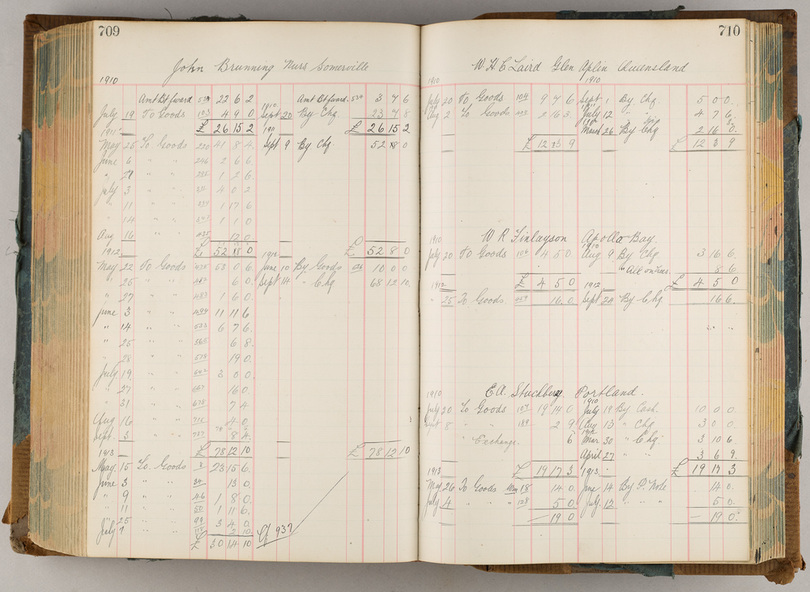 709
John Brunning Nurs Somerville
1910
Amt Bt forward 22 6 2 Amt Bt forward 3 7 6
July 19 To Goods 4 9 0 Sept 20 By Chq 23 7 8
£ 26 15 2 £ 26 15 2
1911
May 26 To Goods 41 8 4 Sept 9 By Chq 52 18 0
June 6 " " 2 6 6
" 21 " " 1 2 6
July 3 " " 4 0 2
" 11 " " 1 17 6
" 14 " " 1 1 0
Aug 16 " "
£ 52 18 0 £ 52 8 0
1912
May 22 To Goods June 10 By Goods 10 0 0
" 25 " " 6 0 Sept 14 " Chq 68 12 10
" 27 " " 1 6 0
June 3 " " 11 11 6
" 14 " " 6 7 6
" 25 " " 6 8
" 28 " " 19 0
July 19 " " 3 0 0
" 27 " " 16 0
" 31 " " 7 4
Aug 16 " " 4 0
Sept 3 " " 8 4
1913 £ 78 12 10 £ 78 12 10
May 15 To Goods 23 15 6
June 3 " " 13 0
" 9 " " 1 8 0
" 11 " " 1 11 6
" 25 " " 3 4 0
July 7 " " 2 10
£ 30 14 10
937
710
W H E Laird Glen Aplin Queensland
1910 1910
July 20 To Goods 9 7 6 Sept 1 By Chq 5 0 0
Aug 2 To Goods 2 16 3 July 12 " " 4 7 6
March 26 By Chq 2 16 3
£ 12 3 9 £ 12 3 9
W R Finlayson Apollo Bay
1910
July 20 To Goods 4 5 0 Aug 9 By Chq 3 16 6
" Allowance
£ 4 5 0 £ 4 5 0
1912 1912
" 25 To Goods 16 0 Sept 20 By Chq 16 6
E A Stuchbury Portland
1910 1910
July 20 To Goods 19 14 0 July 19 By Cash 10 0 0
Sept 8 " " 2 9 Aug 13 " Chq 3 0 0
" Exchange 6 Mar 30 " Chq 3 10 6
April 27 " " 3 6 9
1913 £ 19 17 3 1913 £ 19 17 3
May 26 To Goods May 18 14 0 June 14 By P. Note 14 0
July 4 " " 5 0 July 12 " " 5 0
19 0 19 0